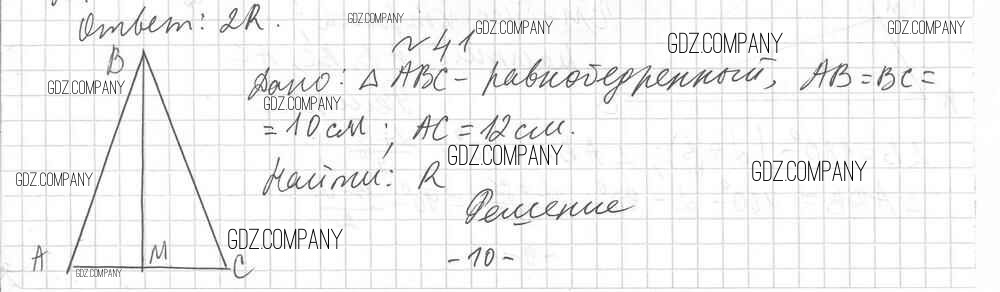 Ответ: 2R.
GDZ.COMPANY
GDZ.COMPANY
GDZ.COMPANY
GDZ.COMPANY
№41
B
GDZ.COMPANY
Дано: △ ABC - равнобедренный, AB = BC =
GDZ.COMPANY
= 10 см; AC = 12 см.
GDZ.COMPANY
GDZ.COMPANY
GDZ.COMPANY
Найти: R
Решение
GDZ.COMPANY
A
M
C
GDZ.COMPANY
-10-